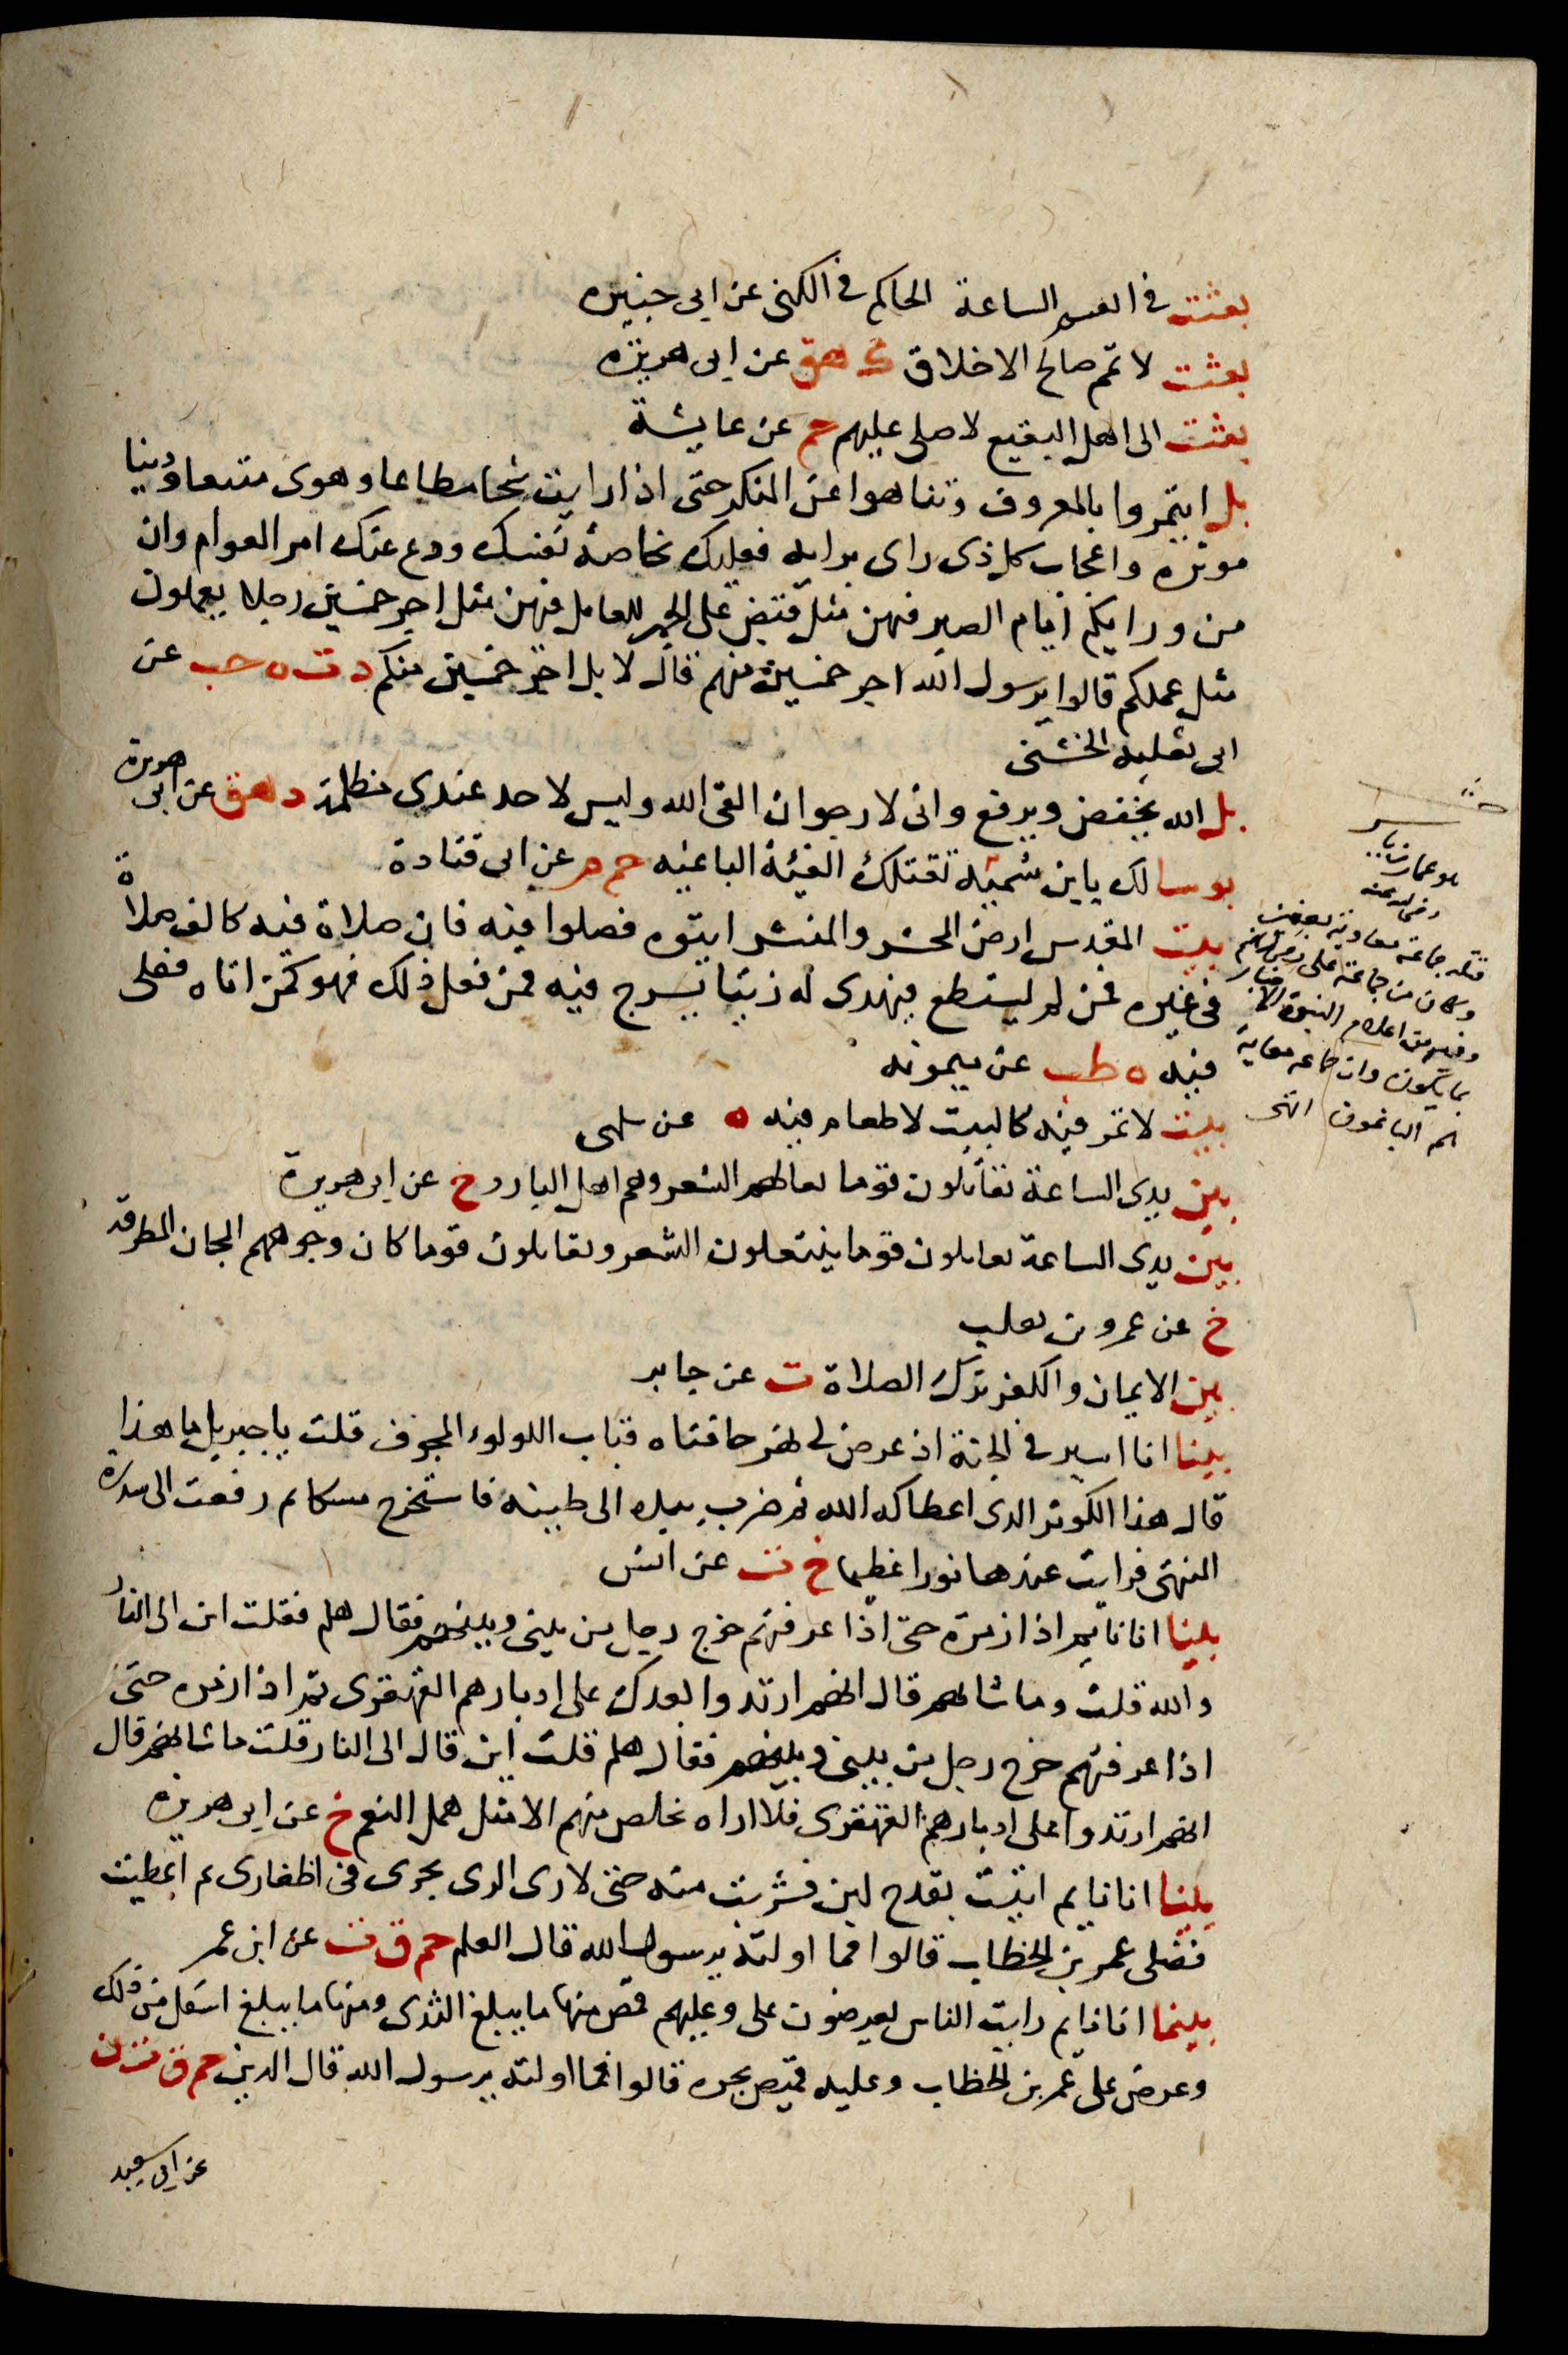 بعثت في الساعة الحاكم في الكنى عن ابى جبيره
بعثت لاتمم صالح الاخلاق ك هق عن ابى هريره
بعثت الى اهل البقيع لاصلى عليهم حم عن عايشة
بل ايتمروا بالمعروف وتناهوا عن المنكر حتى اذا رايت شحا مطاعا وهوى متبعا ودنيا
موثره واعجاب كل ذى راى برايه فعليك بخاصة نفسك ودع عنك امر العوام وان
من ورايكم ايام الصبر فيهن مثل قبض على الجمر للعامل فيهن مثل اجر خمسين رجلا يعملون
مثل عملكم قالوا يرسول الله اجر خمسين منهم قال لا بل اجر خمسين منكم د ت ه حب عن
ابى ثعلبه الخشنى
بل الله يخفض ويرفع وانى لارجو ان القى الله وليس لاحد عندى مظلمة د هق عن ابى هريرة
بوسا لك ياين سميه تقتلك الفيئة الباغيه حم م عن ابى قتادة
بيت المقدس ارض المحشر والمنشر ايتوه فصلوا فيه فان صلاة فيه كالف صلاة
فى غيره فمن لم يستطع فيهدى له زيتا يسرج فيه فمن فعل ذلك فهو كمن اتاه فصلى
فيه ه طب عن ميمونه
بيت لا تمر فيه كالبيت لا طعام فيه ه عن سلمى
بين يدى الساعة تقاتلون قوما نعالهم الشعر وهم اهل البارز خ عن ابى هريرة
بين يدى الساعة تقاتلون قوما ينتعلون الشعر وتقاتلون قوما كان وجوههم المجان المطرقه
خ عن عمرو بن تعلب
بين الايمان والكفر ترك الصلاة ت عن جابر
بينا انا اسير فى الجنة اذ عرض لى نهر حافتاه قباب اللولوء المجوف قلت يا جبريل ما هذا
قال هذا الكوثر الدى اعطاكه الله ثم ضرب بيده الى طينه فاستخرج مسكا ثم رفعت الى سدرة
المنتهى فرايت عندها نورا عظيما خ ت عن انس
بينا انا نايم اذا زمرة حتى اذا عرفتهم خرج رجل من بينى وبينهم فقال هلم فقلت اين الى النار
والله قلت وما شانهم قال انهم ارتدوا بعدك على ادبارهم القهقرى ثم اذا زمره حتى
اذا عرفتهم خرج رجل من بينى وبينهم فقال هلم قلت اين قال الى النار قلت ما شانهم قال
انهم ارتدوا على ادبارهم القهقرى فلا اراه يخلص منهم الا مثل همل النعم خ عن ابى هريره
بينا انا نايم اتيت بقدح لبن فشربت منه حتى لارى الرى يجرى فى اظفارى ثم اعطيت
فضلى عمر بن الخطاب قالوا فما اولته يرسول الله قال العلم حم ق ت عن ابن عمر
بينما انا نايم رايت الناس يعرضون على وعليهم قمص منها ما يبلغ الثدى ومنها ما يبلغ اسفل من ذلك
وعرض على عمر بن الخطاب وعليه قميص يجره قالوا فما اولته يرسول الله قال الدين حم ق ت ن
عن ابى سعيد
هو عمار بن ياسر
رضى الله عنه
قتله جماعة معاوية بصفين
وكان من جماعة على رضى الله عنهم
وفيه من اعلام النبوة الاخبار
بما يكون وان جماعه معاوية
هم الباغون انتهى